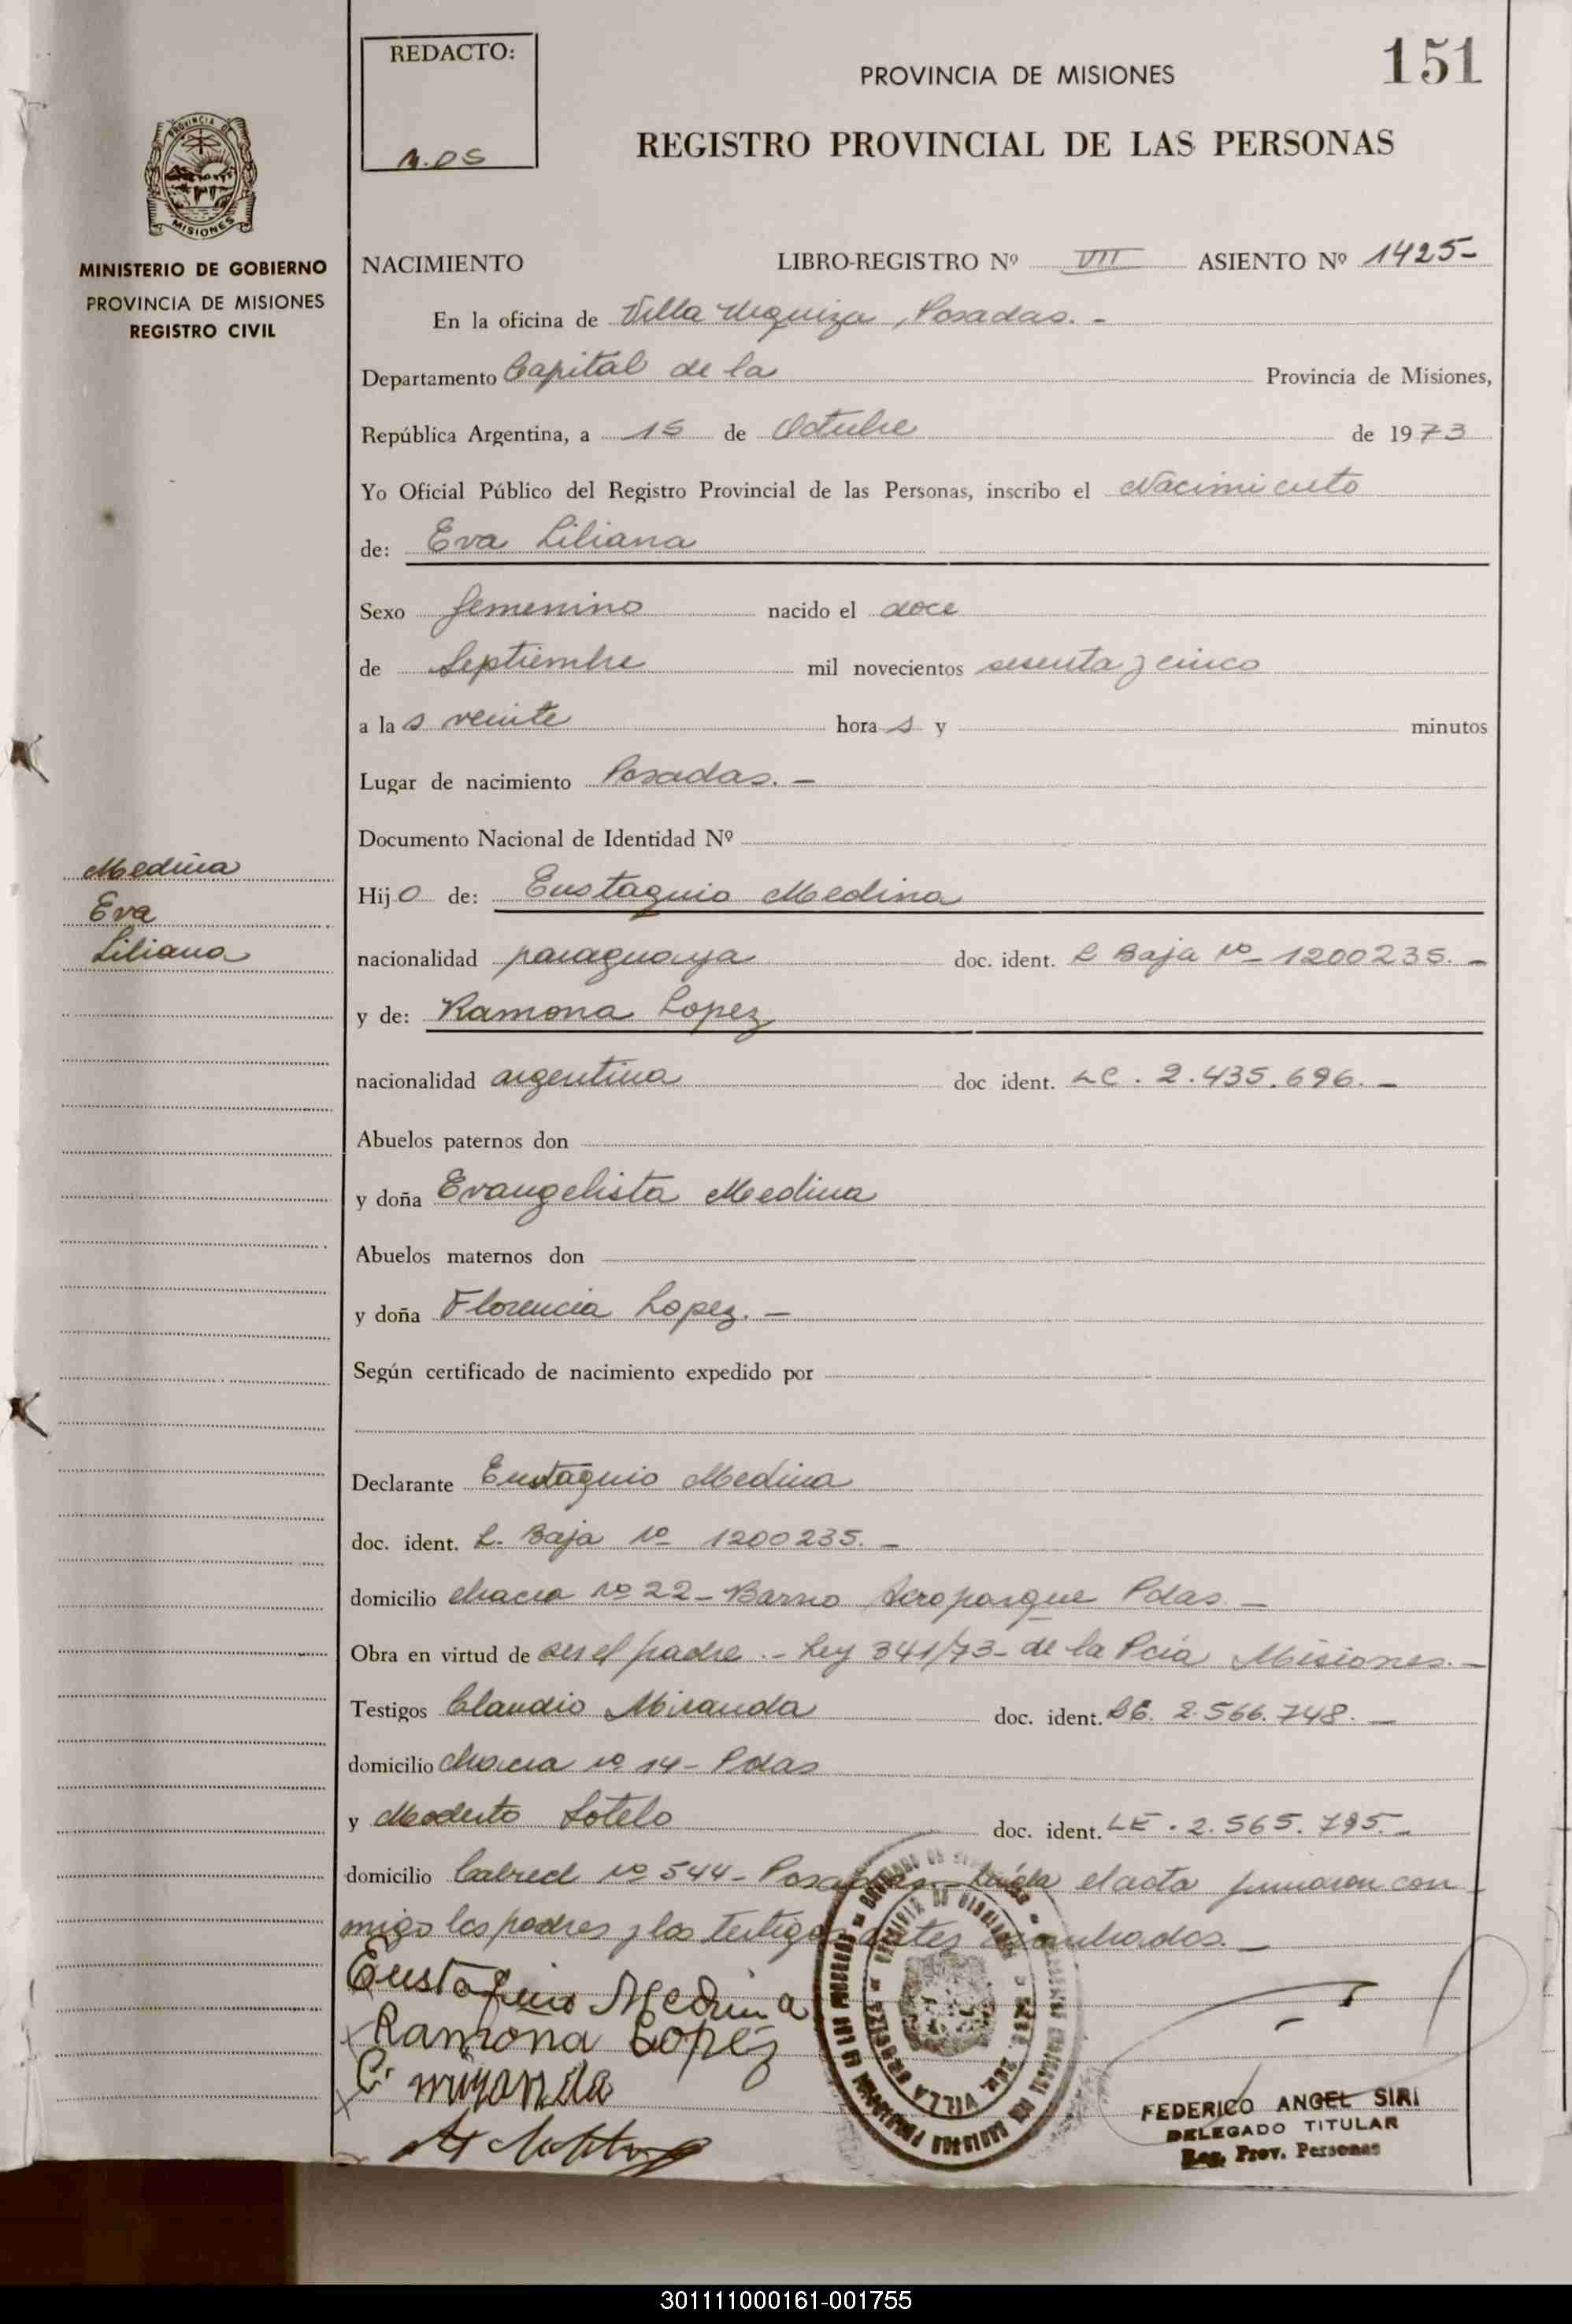 REDACTO:
PROVINCIA DE MISIONES
151
REGISTRO PROVINCIAL DE LAS PERSONAS
PROVINCIA DE
MISIONES
MINISTERIO DE GOBIERNO
PROVINCIA DE MISIONES
REGISTRO CIVIL
NACIMIENTO LIBRO-REGISTRO Nº VIII ASIENTO Nº 1425-
En la oficina de Villa Urquiza, Posadas.-
Departamento Capital de la Provincia de Misiones,
República Argentina, a 15 de Octubre de 1973
Yo Oficial Público del Registro Provincial de las Personas, inscribo el Nacimiento
de: Eva Liliana
Sexo femenino nacido el doce
de Septiembre mil novecientos sesenta y cinco
a la s veinte hora s y minutos
Lugar de nacimiento Posadas.-
Documento Nacional de Identidad Nº
Medina
Eva
Liliana
Hijo de: Eustaquio Medina
nacionalidad paraguaya doc. ident. L Baja Nº 1200235.-
y de: Ramona Lopez
nacionalidad argentina doc ident. LC. 2.435.696.-
Abuelos paternos don
y doña Evangelista Medina
Abuelos maternos don
y doña Florencia Lopez.-
Según certificado de nacimiento expedido por
Declarante Eustaquio Medina
doc. ident. L. Baja Nº 1200235.-
domicilio chacra Nº 22- Barrio Aeroparque Pdas.-
Obra en virtud de ser el padre.- Ley 341/73- de la Pcia Misiones.-
Testigos Claudio Miranda doc. ident. LE. 2.566.748.-
domicilio chacra Nº 14- Pdas
y Modesto Sotelo doc. ident. LE. 2.565.795.-
domicilio Cabred Nº 544- Posadas- Leída el acta firmaron con
migo los padres y los testigos antes nombrados.-
Eustaquio Medina
Ramona Lopez
C. miranda
VILLA URQUIZA
FEDERICO ANGEL SIRI
DELEGADO TITULAR
Reg. Prov. Personas
301111000161-001755